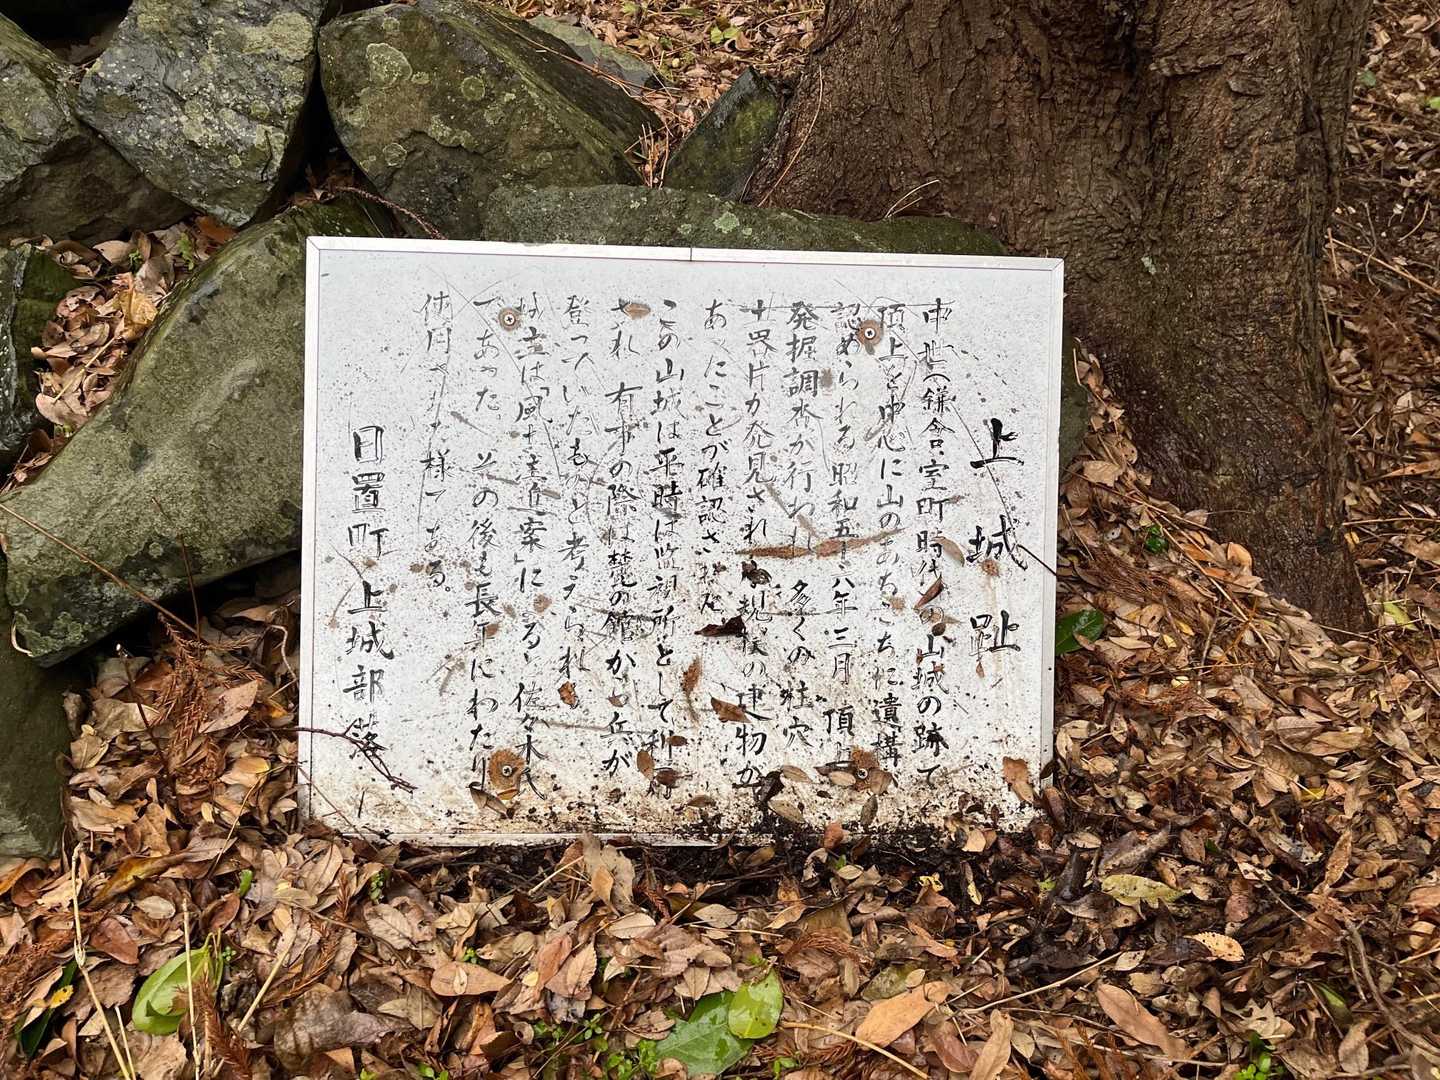 上城趾
中世(鎌倉、室町時代)の山城の跡で
頂上を中心に山のあちこちに遺構
認められる昭和五十八年三月 頂上
発掘調査が行われ 多くの柱穴
土器片が発見され 小規模の建物が
あったことが確認された
この山城は平時は監視所として利用
され 有事の際は麓の館から丘が
登っていたものと考えられ
城主は「風土主進案」による 佐々木氏
であった。その後も長年にわたり
使用された様である。
日置町上城部落